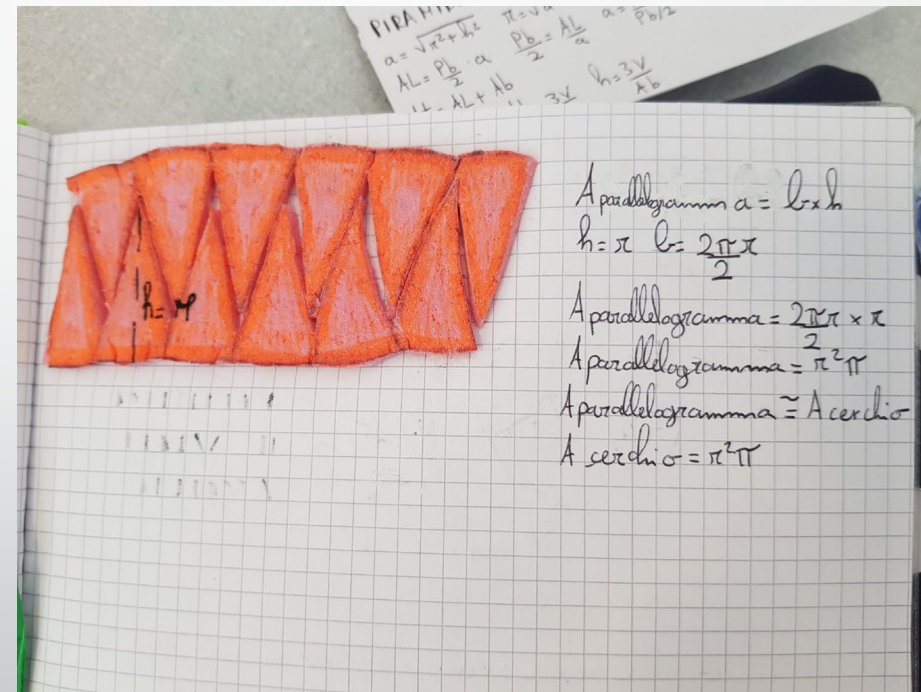 PIRAMI
a = √r²+h²
AL = Pb/2 · a
Pb/2 = AL/a
Pb/2
AL + Ab
3V
h = 3V/Ab
h = r
A parallelogramma = b×h
h = r b = 2πr/2
A parallelogramma = 2πr/2 × r
A parallelogramma = r²π
A parallelogramma ≅ A cerchio
A cerchio = r²π